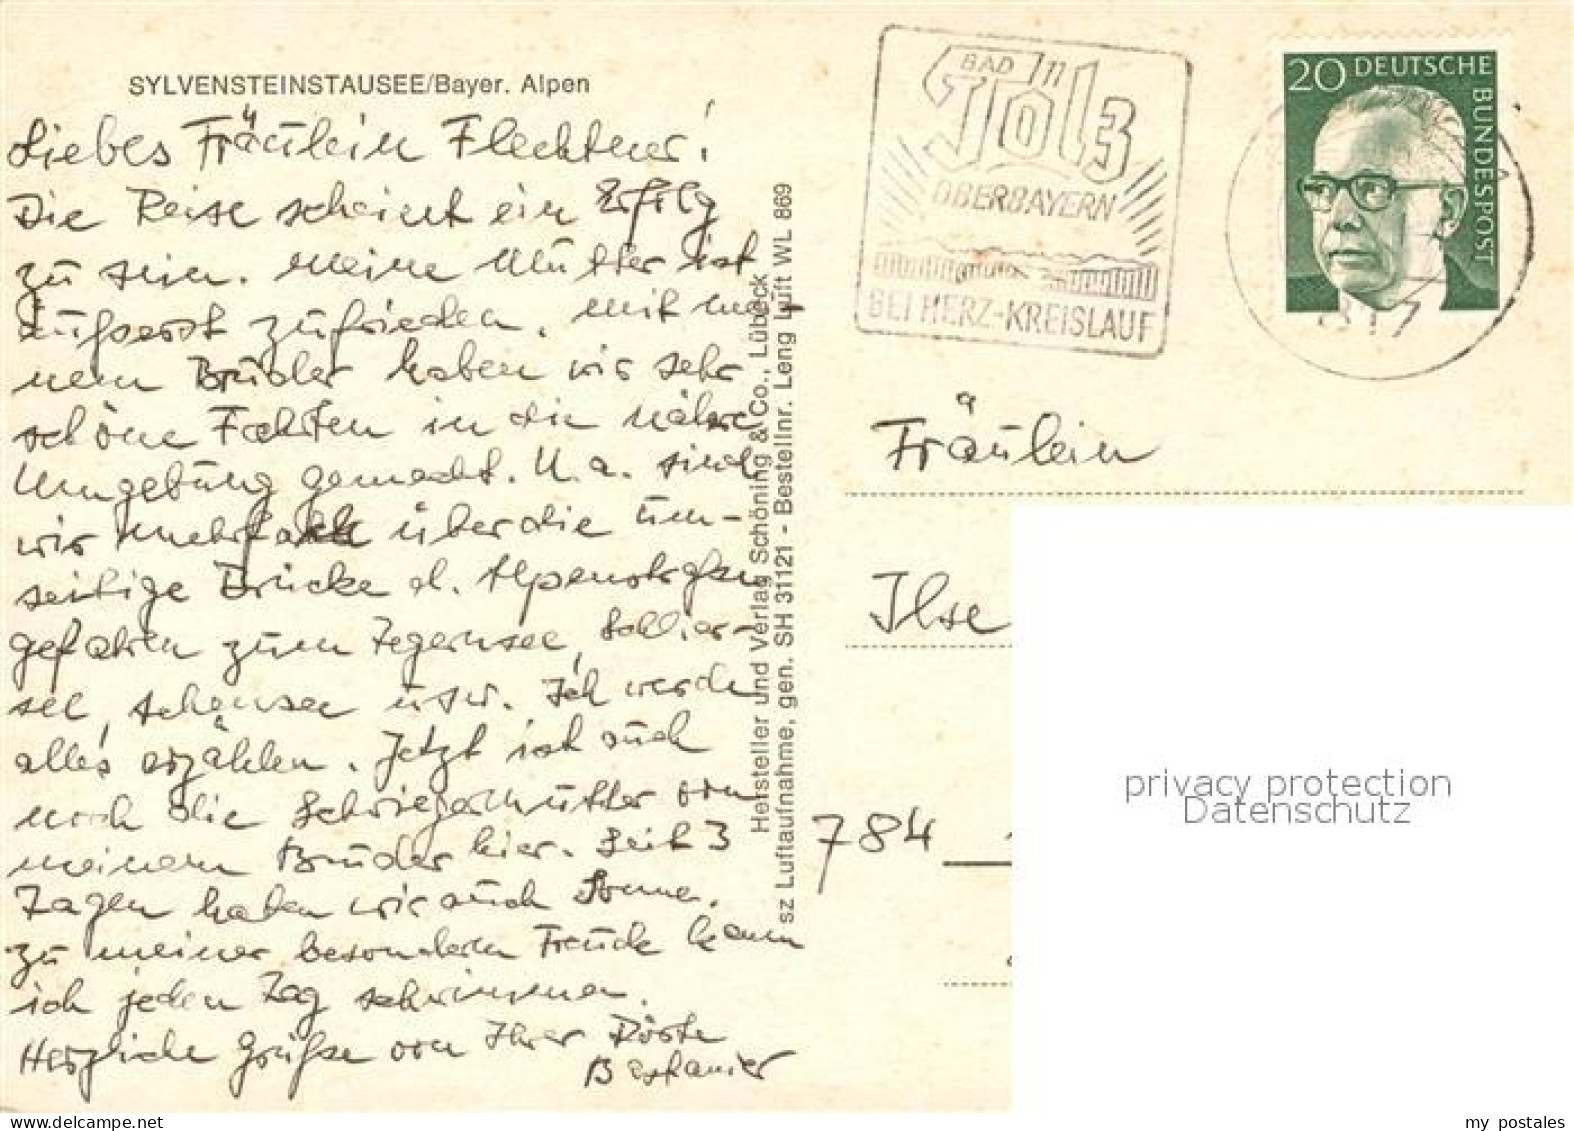 SYLVENSTEINSTAUSEE/Bayer. Alpen
Liebes Fräulein Flechtner!
Die Reise scheint ein Erfolg
zu sein. Meine Mutter ist
äußerst zufrieden. Mit mei-
nem Bruder haben wir sehr
schöne Fahrten in die nähere
Umgebung gemacht. U. a. sind
wir mehrfach über die
seitige Brücke d. Alpenstraße
gefahren zum Tegernsee, Schlier-
see, usw. Ich werde
alles erzählen. Jetzt ist auch
noch die Schwiegermutter von
meinem Bruder hier. Seit 3
Tagen haben wir auch Sonne.
Zu meiner besonderen Freude kann
ich jeden Tag schwimmen.
Herzliche Grüße von Ihrer Dörte
Hersteller und Verlag Schöning & Co., Lübeck
sz Luftaufnahme, gen. SH 31121 - Bestellnr. Leng Luft WL 869
BAD
in
Tölz
OBERBAYERN
BEI HERZ-KREISLAUF
20 DEUTSCHE
BUNDESPOST
817
Fräulein
Ilse
784
privacy protection
Datenschutz
my postales